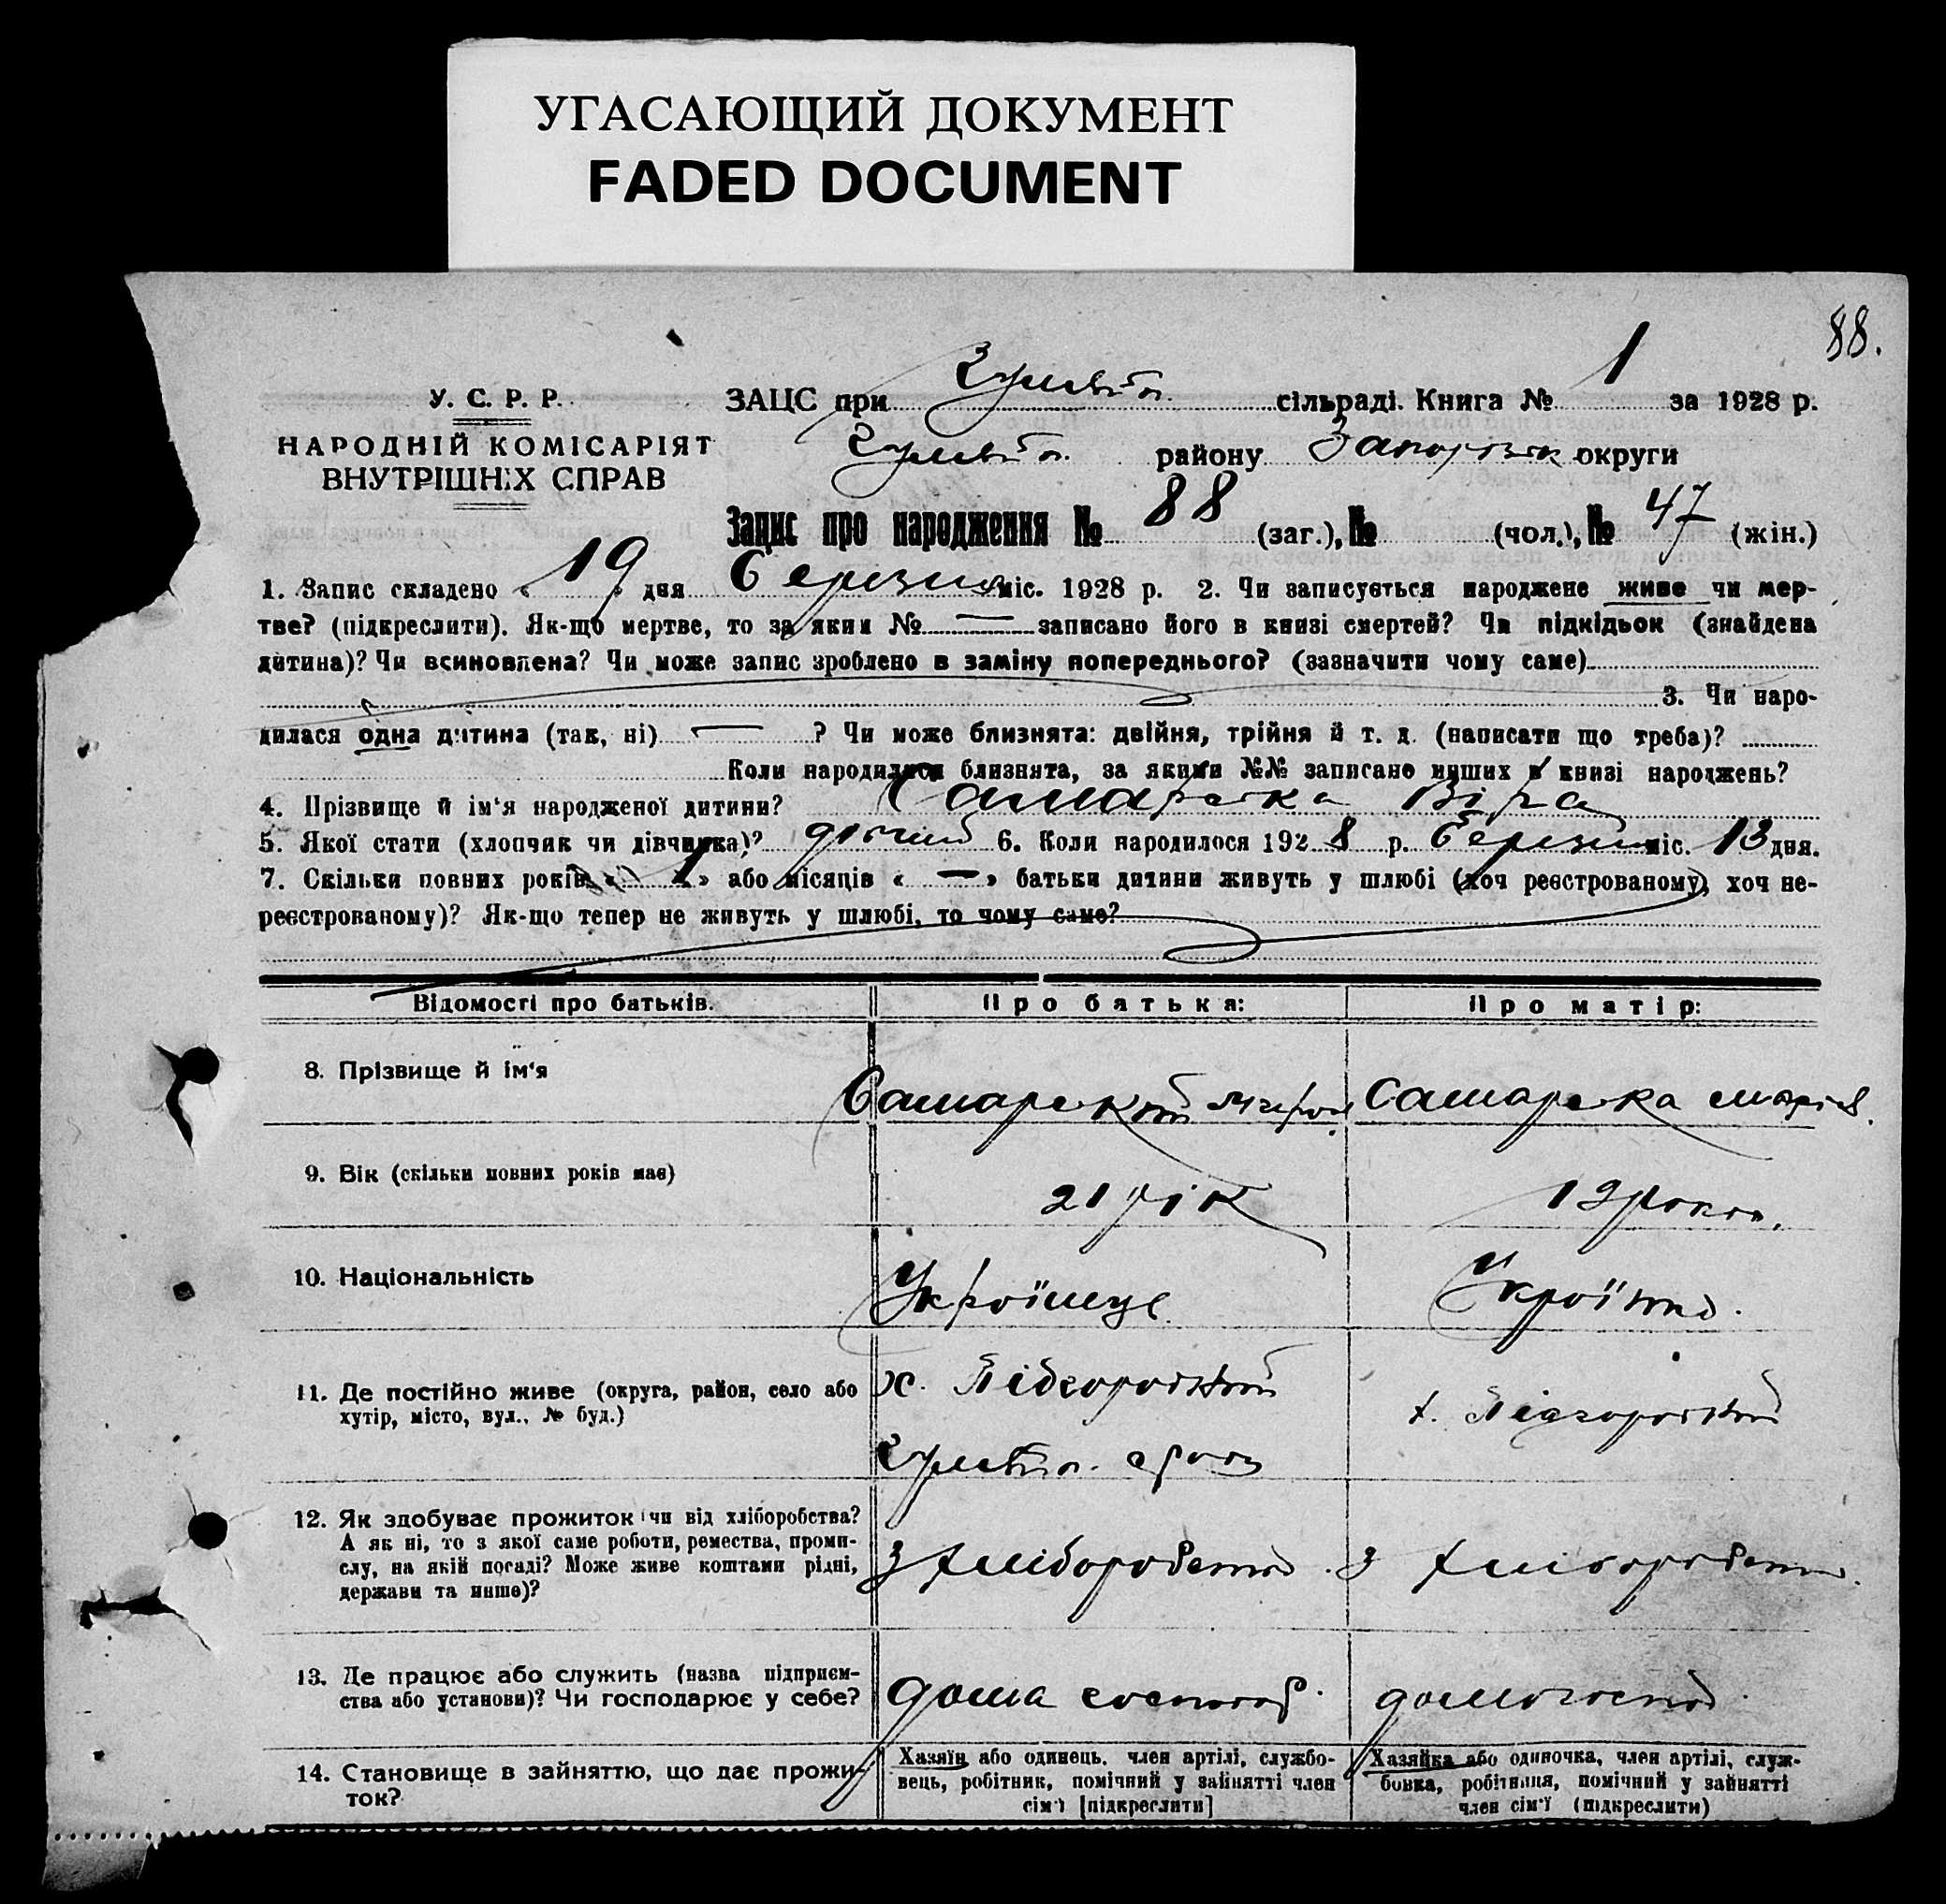 УГАСАЮЩИЙ ДОКУМЕНТ
FADED DOCUMENT
88.
У. С. Р. Р.
НАРОДНІЙ КОМІСАРІЯТ
ВНУТРІШНІХ СПРАВ
ЗАЦС при сільраді. Книга № 1 за 1928 р.
району округи
Запис про народження № 88 (заг.), № (чол.), № 47 (жін.)
1. Запис складено « 19 » дня Березня міс. 1928 р. 2. Чи записується народжене живе чи мер-
тве? (підкреслити). Як-що мертве, то за яким № — записано його в книзі смертей? Чи підкідьок (знайдена
дитина)? Чи всиновлена? Чи може запис зроблено в заміну попереднього? (зазначити чому саме)
3. Чи наро-
дилася одна дитина (так, ні) — ? Чи може близнята: двійня, трійня й т. д. (написати що треба)?
Коли народилися близнята, за якими №№ записано инших в книзі народжень?
4. Прізвище й ім'я народженої дитини? Самарська Віра
5. Якої стати (хлопчик чи дівчинка)? 6. Коли народилося 1928 р. Березня міс. 13 дня.
7. Скільки повних років « 1 » або місяців « — » батьки дитини живуть у шлюбі (хоч реєстрованому, хоч не-
реєстрованому)? Як-що тепер не живуть у шлюбі, то чому саме?
Відомості про батьків. Про батька: Про матір:
8. Прізвище й ім'я
Самарський Самарська Марія.
9. Вік (скільки повних років має)
21 рік 19 років.
10. Національність
Українець Українка.
11. Де постійно живе (округа, район, село або
хутір, місто, вул., № буд.)
х. Підгородній х. Підгородній
12. Як здобуває прожиток (чи від хліборобства?
А як ні, то з якої саме роботи, ремества, проми-
слу, на якій посаді? Може живе коштами рідні,
держави та инше)?
З хліборобства. З хліборобства.
13. Де працює або служить (назва підприєм-
ства або установи)? Чи господарює у себе?
дома господ. домогосп.
14. Становище в зайняттю, що дає прожи-
ток?
Хазяїн або одинець, член артілі, службо-
вець, робітник, помічний у зайнятті член
сім'ї [підкреслити]
Хазяйка або одиночка, член артілі, служ-
бовка, робітниця, помічний у зайнятті
член сім'ї (підкреслити)